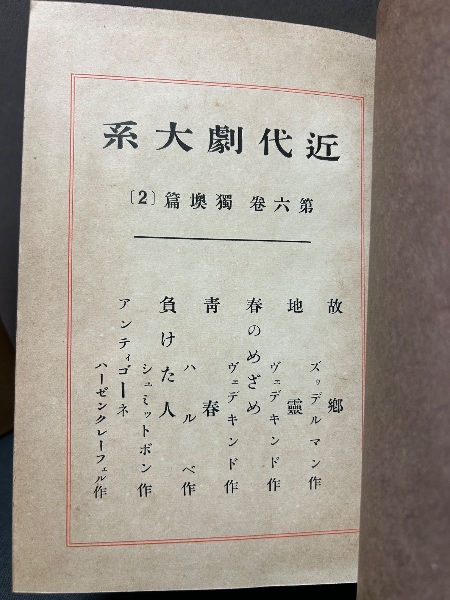 近代劇大系
第六卷 獨墺篇〔2〕
故鄉
ズッデルマン作
地靈
ヴェデキンド作
春のめざめ
ヴェデキンド作
靑春
ハルベ作
負けた人
シュミットボン作
アンティゴーネ
ハーゼンクレーフェル作